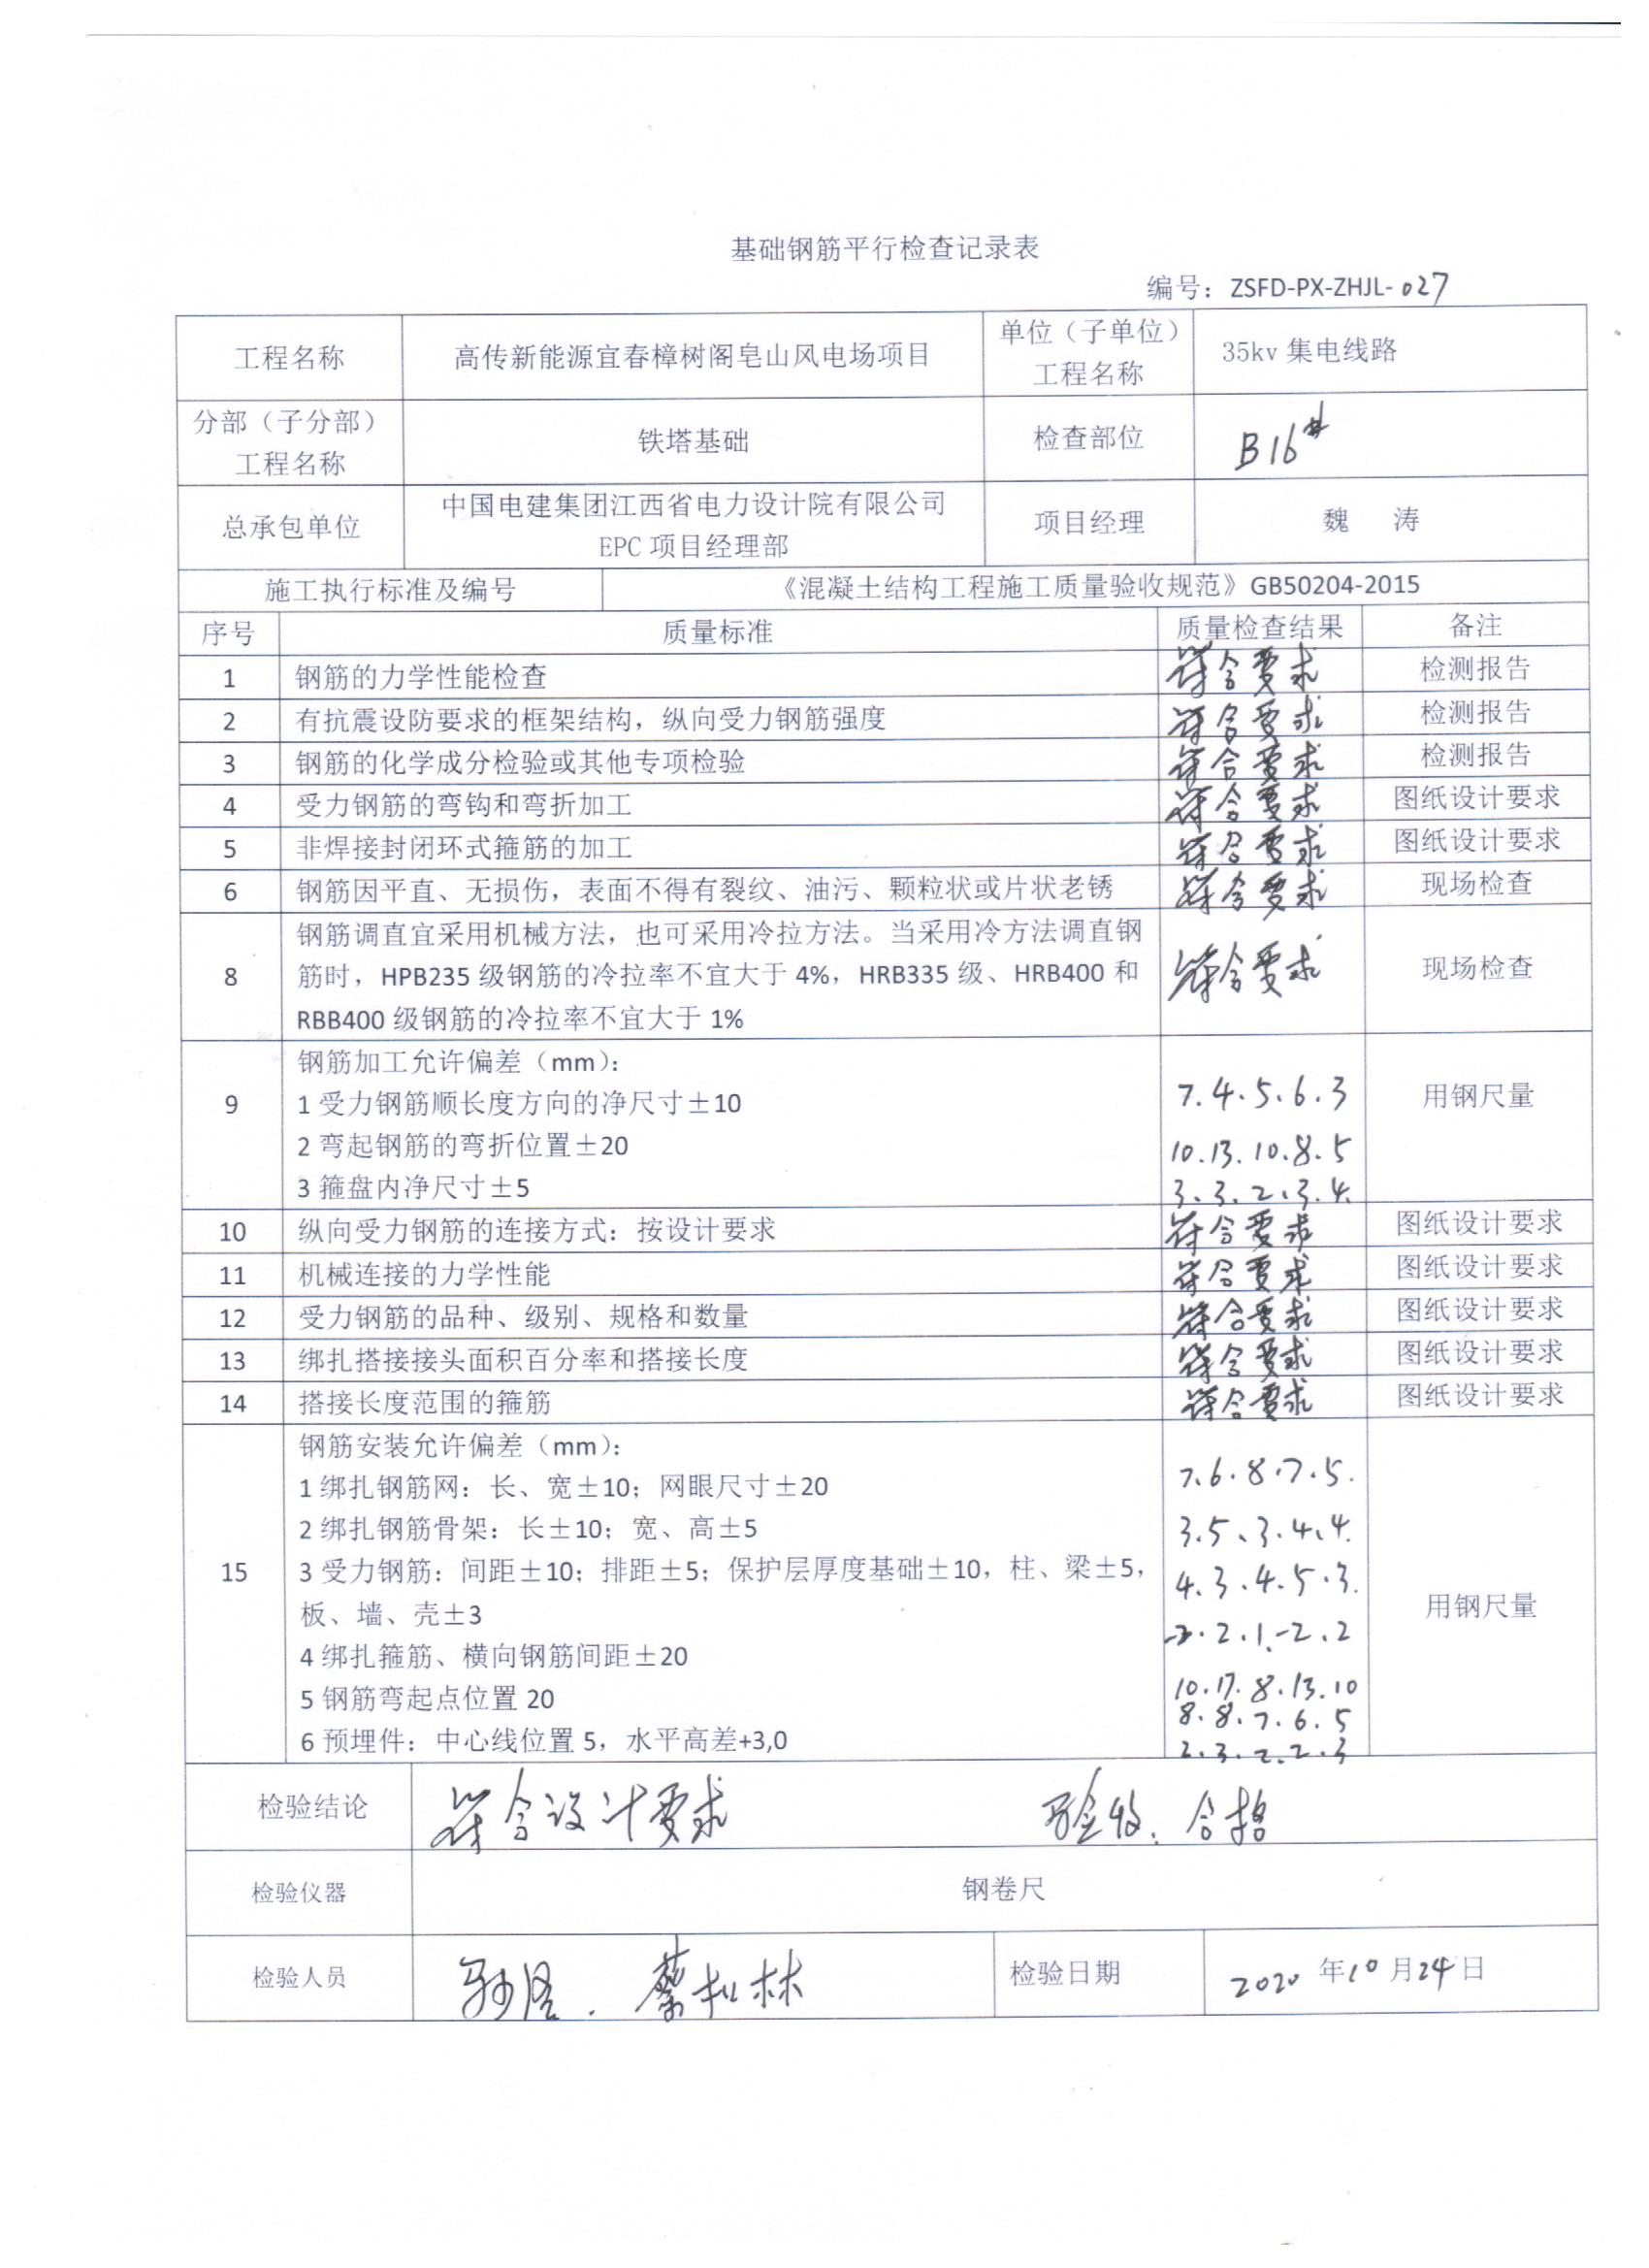 基础钢筋平行检查记录表
编号：ZSFD-PX-ZHJL-027
工程名称 高传新能源宜春樟树阁皂山风电场项目 单位（子单位）工程名称 35kv 集电线路
分部（子分部）工程名称 铁塔基础 检查部位 B16#
总承包单位 中国电建集团江西省电力设计院有限公司 EPC 项目经理部 项目经理 魏 涛
施工执行标准及编号 《混凝土结构工程施工质量验收规范》GB50204-2015
序号 质量标准 质量检查结果 备注
1 钢筋的力学性能检查 符合要求 检测报告
2 有抗震设防要求的框架结构，纵向受力钢筋强度 符合要求 检测报告
3 钢筋的化学成分检验或其他专项检验 符合要求 检测报告
4 受力钢筋的弯钩和弯折加工 符合要求 图纸设计要求
5 非焊接封闭环式箍筋的加工 符合要求 图纸设计要求
6 钢筋因平直、无损伤，表面不得有裂纹、油污、颗粒状或片状老锈 符合要求 现场检查
钢筋调直宜采用机械方法，也可采用冷拉方法。当采用冷方法调直钢
8 筋时，HPB235 级钢筋的冷拉率不宜大于 4%，HRB335 级、HRB400 和 符合要求 现场检查
RBB400 级钢筋的冷拉率不宜大于 1%
钢筋加工允许偏差（mm）：
9 1 受力钢筋顺长度方向的净尺寸±10 7.4.5.6.3 用钢尺量
2 弯起钢筋的弯折位置±20 10.13.10.8.5
3 箍盘内净尺寸±5 3.3.2.3.4.
10 纵向受力钢筋的连接方式：按设计要求 符合要求 图纸设计要求
11 机械连接的力学性能 符合要求 图纸设计要求
12 受力钢筋的品种、级别、规格和数量 符合要求 图纸设计要求
13 绑扎搭接接头面积百分率和搭接长度 符合要求 图纸设计要求
14 搭接长度范围的箍筋 符合要求 图纸设计要求
钢筋安装允许偏差（mm）：
1 绑扎钢筋网：长、宽±10；网眼尺寸±20 7.6.8.7.5.
2 绑扎钢筋骨架：长±10；宽、高±5 3.5、3.4.4.
15 3 受力钢筋：间距±10；排距±5；保护层厚度基础±10，柱、梁±5， 4.3.4.5.3. 用钢尺量
板、墙、壳±3 -2.2.1.-2.2
4 绑扎箍筋、横向钢筋间距±20 10.17.8.13.10
5 钢筋弯起点位置 20 8.8.7.6.5
6 预埋件：中心线位置 5，水平高差+3,0 2.3.2.2.3
检验结论 符合设计要求 验收.合格
检验仪器 钢卷尺
检验人员 检验日期 2020 年 10 月 24 日